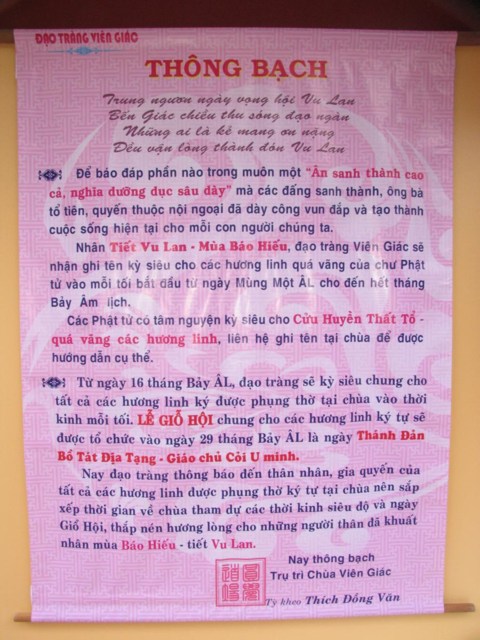 ĐẠO TRÀNG VIÊN GIÁC
THÔNG BẠCH
Trung nguơn ngày vọng hội Vu Lan
Bến Giác chiều thu sóng dạo ngàn
Những ai là kẻ mang ơn nặng
Đều vận lòng thành đón Vu Lan
Để báo đáp phần nào trong muôn một "Ân sanh thành cao
cả, nghĩa dưỡng dục sâu dày" mà các đấng sanh thành, ông bà
tổ tiên, quyến thuộc nội ngoại đã dày công vun đắp và tạo thành
cuộc sống hiện tại cho mỗi con người chúng ta.
Nhân Tiết Vu Lan - Mùa Báo Hiếu, đạo tràng Viên Giác sẽ
nhận ghi tên kỳ siêu cho các hương linh quá vãng của chư Phật
tử vào mỗi tối bắt đầu từ ngày Mùng Một ÂL cho đến hết tháng
Bảy Âm lịch.
Các Phật tử có tâm nguyện kỳ siêu cho Cửu Huyền Thất Tổ -
quá vãng các hương linh, liên hệ ghi tên tại chùa để được
hướng dẫn cụ thể.
Từ ngày 16 tháng Bảy ÂL, đạo tràng sẽ kỳ siêu chung cho
tất cả các hương linh ký được phụng thờ tại chùa vào thời
kinh mỗi tối. LỄ GIỖ HỘI chung cho các hương linh ký tự sẽ
được tổ chức vào ngày 29 tháng Bảy ÂL là ngày Thánh Đản
Bồ Tát Địa Tạng - Giáo chủ Cõi U minh.
Nay đạo tràng thông báo đến thân nhân, gia quyến của
tất cả các hương linh được phụng thờ ký tự tại chùa nên sắp
xếp thời gian về chùa tham dự các thời kinh siêu độ và ngày
Giổ Hội, thắp nén hương lòng cho những người thân đã khuất
nhân mùa Báo Hiếu - tiết Vu Lan.
Nay thông bạch
Trụ trì Chùa Viên Giác
Tỳ kheo Thích Đồng Văn